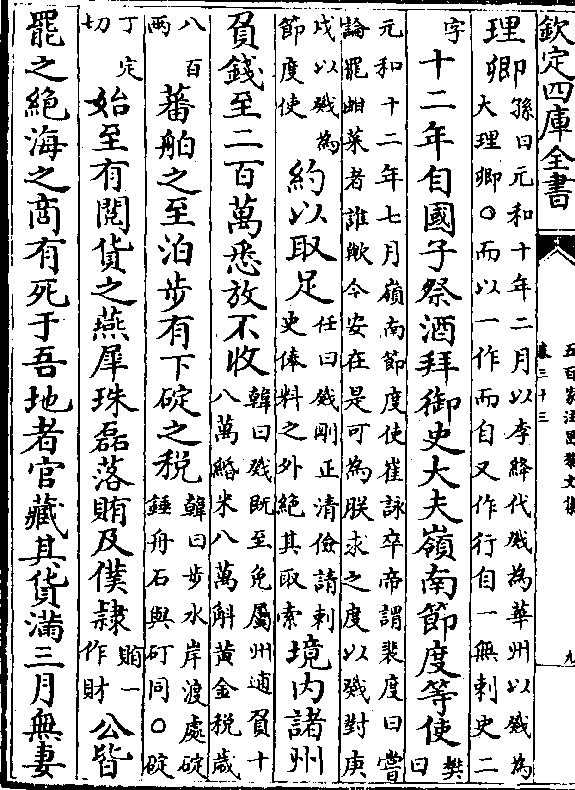 欽定四庫全書
五百家注昌黎文集
卷三十三
九
理卿
孫曰元和十年二月以李絳代戣為華州以戣為
大理卿○而以一作而自又作行自一無刺史二
字
十二年自國子祭酒拜御史大夫嶺南節度等使
樊
曰
元和十二年七月嶺南節度使崔詠卒帝謂裴度曰嘗
論罷蚶菜者誰歟今安在是可為朕求之度以戣對庚
戌以戣為
節度使
約以取足
任曰戣剛正清儉請刺
史俸料之外絶其取索
境内諸州
負錢至二百萬悉放不收
韓曰戣既至免屬州逋負十
八萬緡米八萬斛黃金税歲
八百
两
蕃舶之至泊步有下碇之税
韓曰步水岸渡處碇
錘舟石與矴同○碇
丁定
切
始至有閱貨之燕犀珠磊落賄及僕隷
賄一
作財
公皆
罷之絶海之商有死于吾地者官藏其貨滿三月無妻